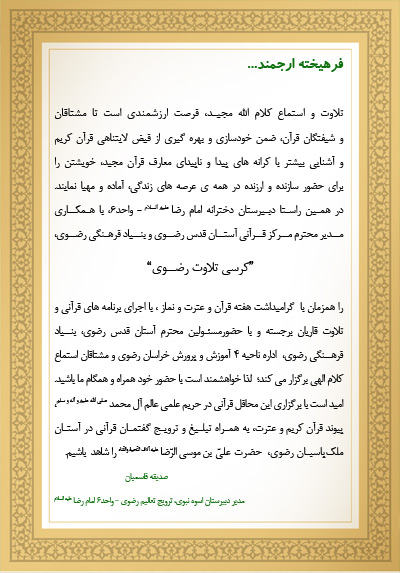 فرهیخته ارجمند...
تلاوت و استماع کلام الله مجیـد، فرصت ارزشمندی است تا مشتاقان
و شیفتگان قرآن، ضمن خودسازی و بهره گیری از فیض لایتناهی قرآن کریم
و آشنایی بیشتر با کرانه های پیدا و ناپیدای معارف قرآن مجید، خویشتن را
برای حضور سازنده و ارزنده در همه ی عرصه های زندگی، آماده و مهیا نمایند.
در همـین راستـا دبیـرستان دخترانه امام رضا علیه السلام - واحد۶، با هـمکـاری
مـدیر محترم مـرکز قـرآنی آستـان قدس رضـوی و بنـیاد فرهـنگی رضـوی،
”کرسی تلاوت رضـوی“
را همزمان با گرامیداشت هفته قرآن و عترت و نماز ، با اجرای برنامه های قرآنی و
تلاوت قاریان برجسته و با حضورمسئولین محترم آستان قدس رضوی، بنـیاد
فرهـنگی رضوی، اداره ناحیه ۴ آموزش و پرورش خراسان رضوی و مشتاقان استماع
کلام الهی برگزار می کند؛ لذا خواهشمند است با حضور خود همراه و همگام ما باشید.
امید است با برگزاری این محافل قرآنی در حریم علمی عالم آل محمد صلی الله علیه و آله و سلم،
پیوند قرآن کریم و عترت، به همـراه تبلـیغ و ترویـج گفتمـان قرآنی در آستـان
ملک‌پاسبـان رضوی، حضرت علیّ بن موسی الرّضا را شاهد باشیم.
صدیقه قاسمیان
مدیر دبیرستان اسوه نبوی، ترویج تعالیم رضوی - واحد۶ امام رضا علیه السلام